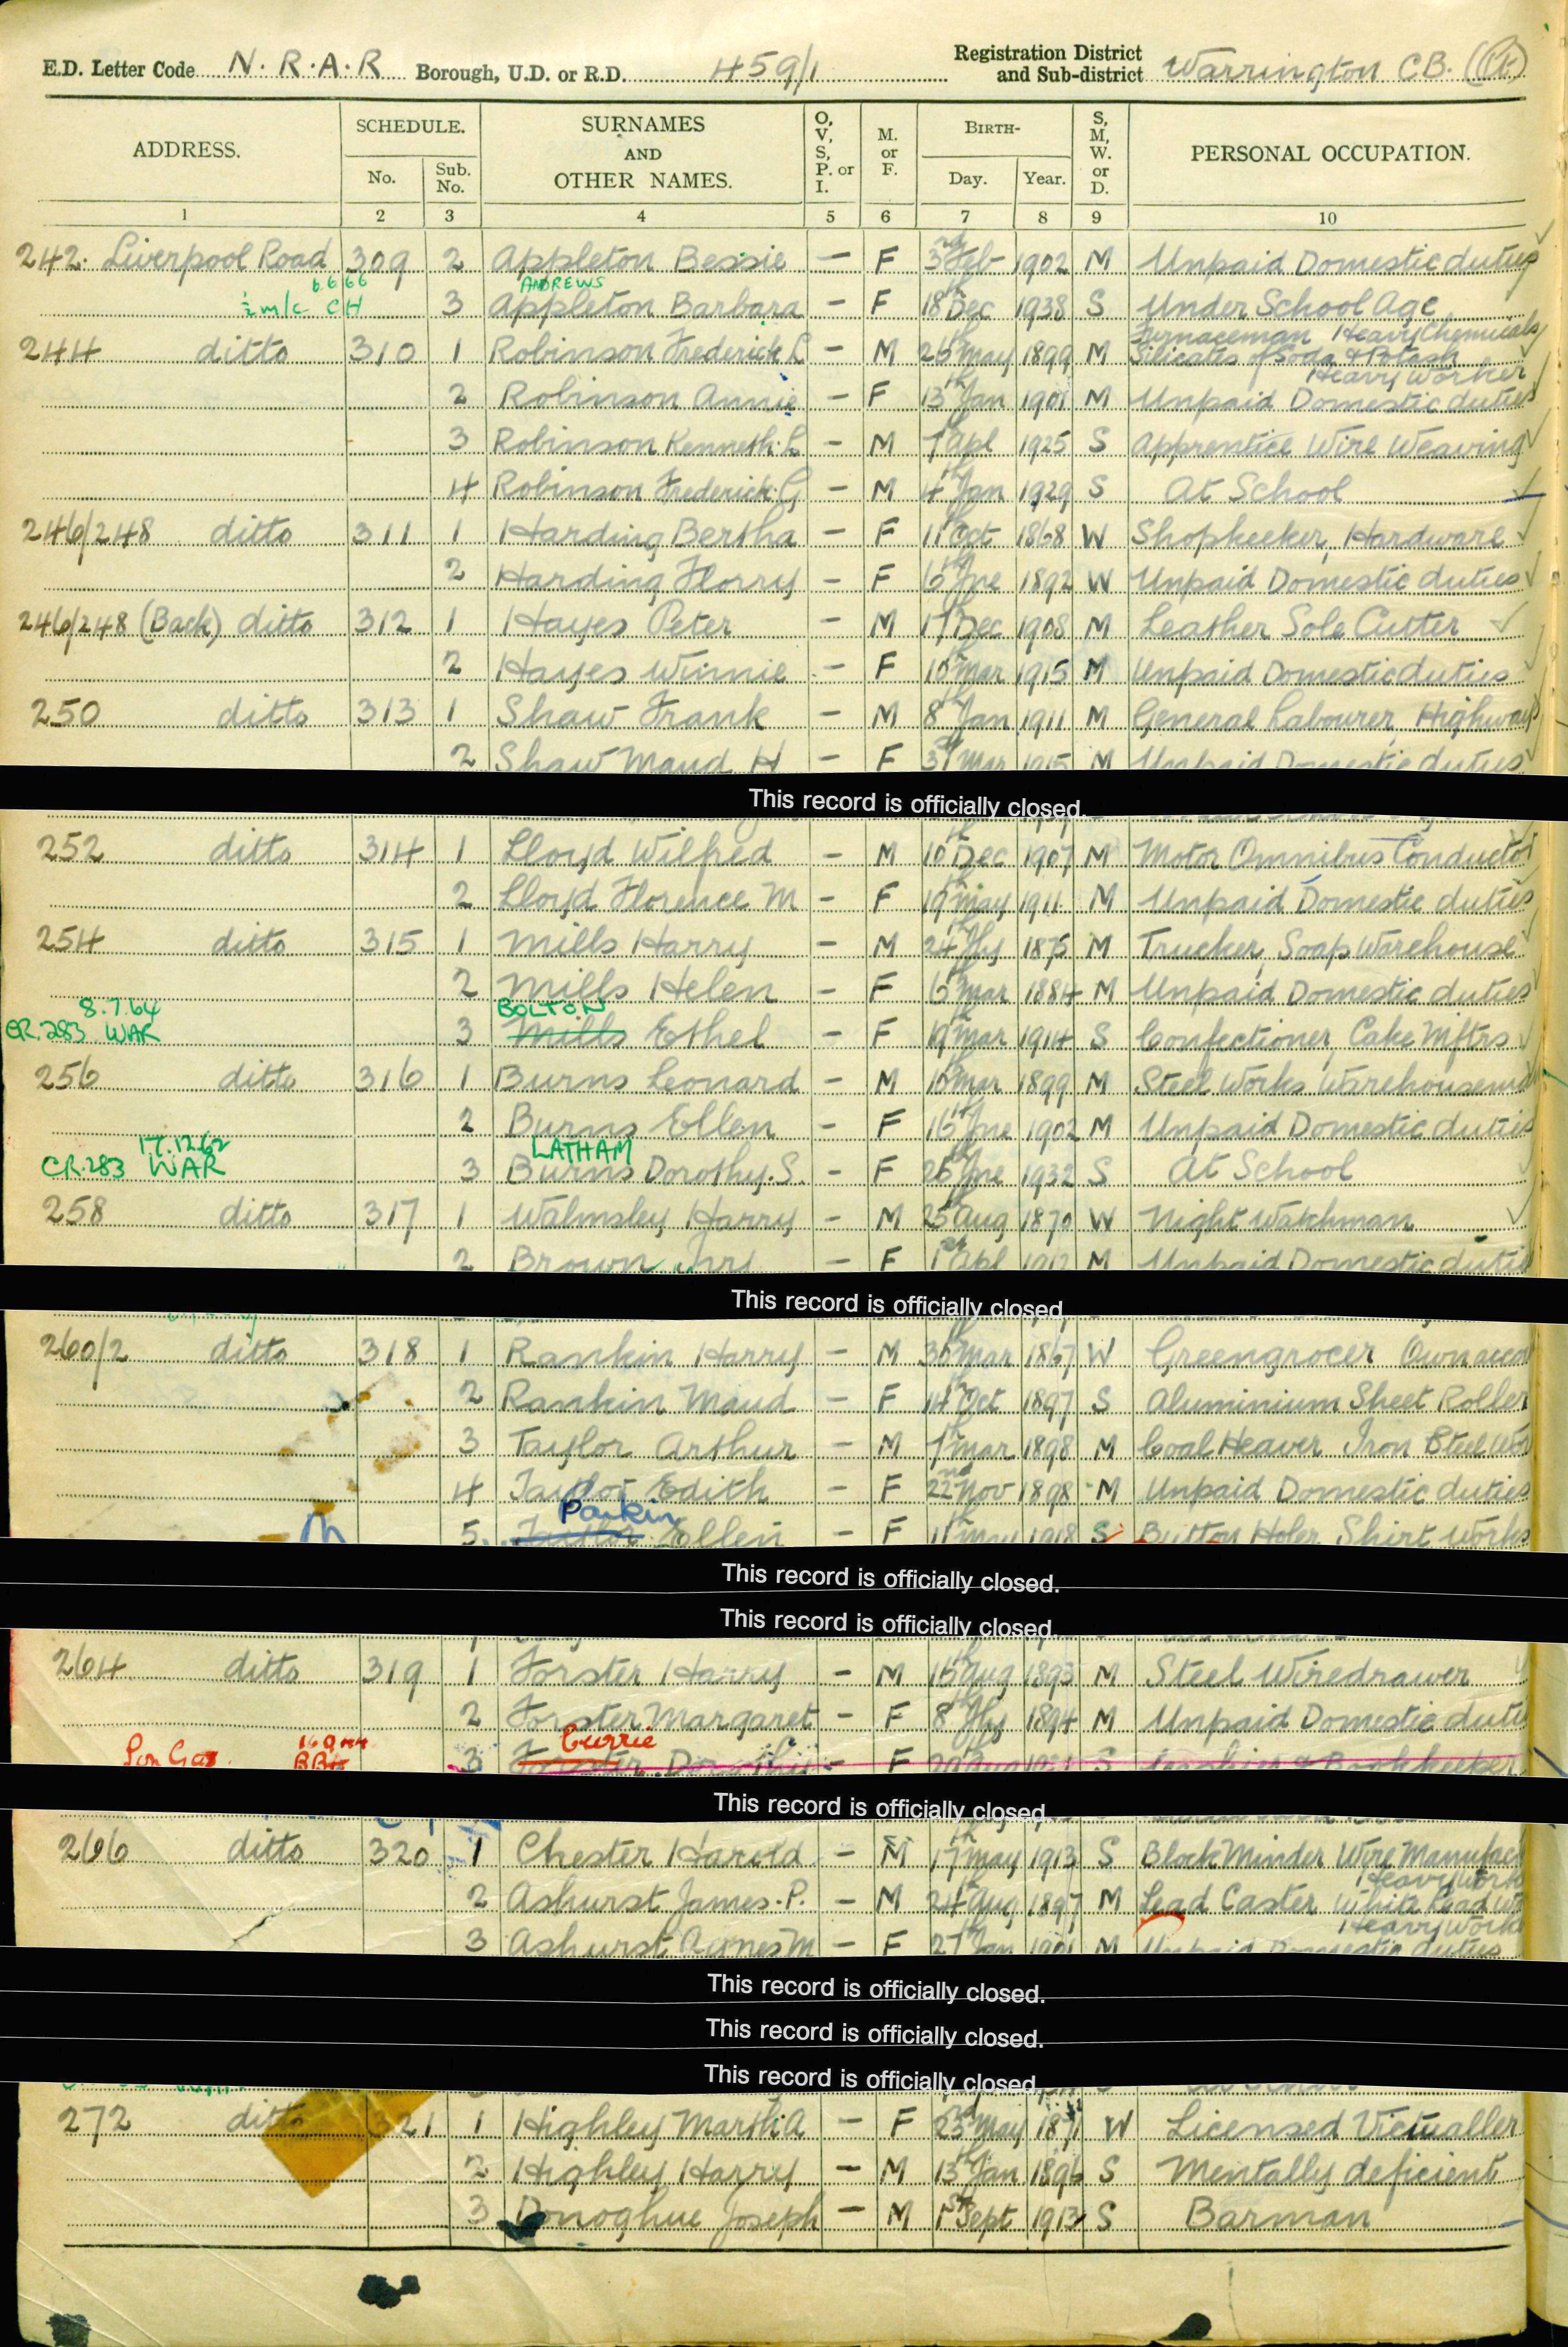 E.D. Letter Code N. R. A. R Borough, U.D. or R.D. 459/1 Registration District and Sub-district Warrington C.B. (Pt)
ADDRESS. SCHEDULE. No. Sub. No. SURNAMES AND OTHER NAMES. O, V, S, P. or I. M. or F. BIRTH- Day. Year. S, M, W. or D. PERSONAL OCCUPATION.
1 2 3 4 5 6 7 8 9 10
242 Liverpool Road 309 2 Appleton Bessie — F 3rd Feb 1902 M Unpaid Domestic duties
6.6.66 ANDREWS
½ m/c CH 3 Appleton Barbara — F 18th Dec 1938 S Under School Age
Furnaceman Heavy Chemicals
244 ditto 310 1 Robinson Frederick L — M 26th May 1899 M Silicates of Soda & Potash
Heavy Worker
2 Robinson Annie — F 13th Jan 1901 M Unpaid Domestic duties
3 Robinson Kenneth. L — M 7th Apl 1925 S Apprentice Wire Weaving
4 Robinson Frederick. G — M 4th Jan 1929 S At School
246/248 ditto 311 1 Harding Bertha — F 11th Oct 1868 W Shopkeeper, Hardware
2 Harding Florry — F 6th Jne 1892 W Unpaid Domestic duties
246/248 (Back) ditto 312 1 Hayes Peter — M 17th Dec 1908 M Leather Sole Cutter
2 Hayes Winnie — F 10th Mar 1915 M Unpaid Domestic duties
250 ditto 313 1 Shaw Frank — M 8th Jan 1911 M General Labourer, Highways
2 Shaw Maud H — F 31st Mar 1915 M Unpaid Domestic duties
This record is officially closed.
252 ditto 314 1 Lloyd Wilfred — M 10th Dec 1907 M Motor Omnibus Conductor
2 Lloyd Florence M — F 19th May 1911 M Unpaid Domestic duties
254 ditto 315 1 Mills Harry — M 24th Jly 1875 M Trucker, Soap Warehouse
2 Mills Helen — F 6th Mar 1884 M Unpaid Domestic duties
8.7.64 BOLTON
CR.283 WAR 3 Mills Ethel — F 19th Mar 1914 S Confectioner, Cake Mftrs
256 ditto 316 1 Burns Leonard — M 10th Mar 1899 M Steel Works Warehouseman
2 Burns Ellen — F 16th Jne 1902 M Unpaid Domestic duties
17.12.62 LATHAM
CR.283 WAR 3 Burns Dorothy. S. — F 26th Jne 1932 S At School
258 ditto 317 1 Walmsley Harry — M 25th Aug 1870 W Night Watchman
2 Brown — F 1st Apl 1912 M Unpaid Domestic duties
This record is officially closed.
260/2 ditto 318 1 Rankin Harry — M 30th Mar 1867 W Greengrocer Own account
2 Rankin Maud — F 14th Oct 1897 S Aluminium Sheet Roller
3 Taylor Arthur — M 7th Mar 1898 M Coal Heaver Iron Steel Wor
4 Taylor Edith — F 22nd Nov 1898 M Unpaid Domestic duties
Parkin
5 Taylor Ellen — F 11th May 1918 S Button Holer, Shirt Works
This record is officially closed.
This record is officially closed.
264 ditto 319 1 Forster Harry — M 15th Aug 1893 M Steel Wiredrawer
2 Forster Margaret — F 8th Jly 1894 M Unpaid Domestic duti
Currie
3 Forster — F S & Bookkeeper
This record is officially closed.
266 ditto 320 1 Chester Harold — M 17th May 1913 S Block Minder Wire Manufac
Heavy Work
2 Ashurst James. P. — M 24th Aug 1897 M Lead Caster White Lead Wo
Heavy Work
3 Ashurst Agnes M — F 27th Jan 1901 M Unpaid Domestic duties
This record is officially closed.
This record is officially closed.
This record is officially closed.
272 ditto 321 1 Highley Marth. A — F 23rd May 1871 W Licensed Victualler
2 Highley Harry — M 13th Jan 1896 S Mentally deficient
3 Donoghue Joseph — M 1st Sept 1913 S Barman